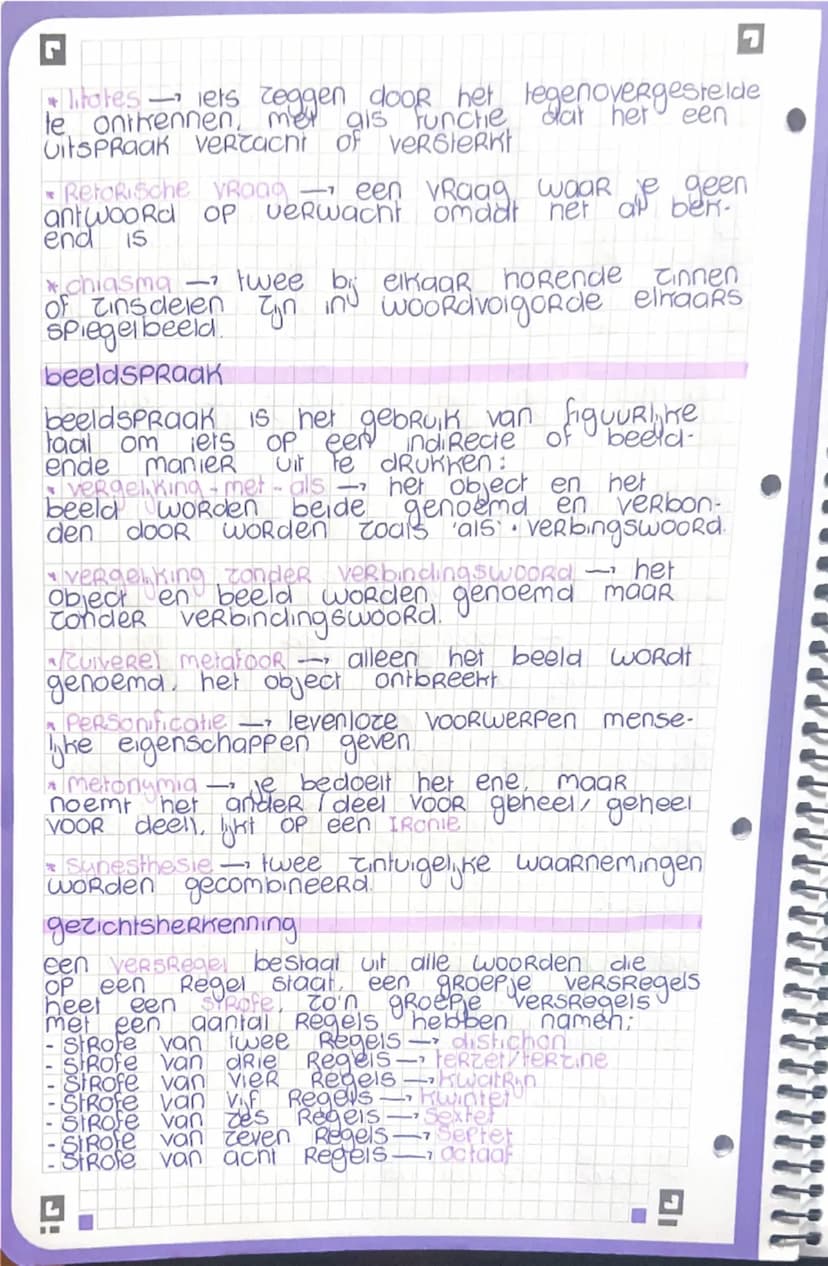 * litotes → iets zeggen door het tegenovergestelde
te ontkennen, met als functie dat het een
uitspraak verzacht of versterkt
* Retorische vraag → een vraag waar je geen
antwoord op verwacht omdat het al bek-
end is
* chiasma → twee bij elkaar horende zinnen
of zinsdelen zijn in woordvolgorde elkaars
spiegelbeeld.
beeldspraak
beeldspraak is het gebruik van figuurlijke
taal om iets op een indirecte of beeld-
ende manier uit te drukken:
* vergelijking-met-als → het object en het
beeld worden beide genoemd en verbon-
den door worden zoals 'als' • verbingswoord.
* vergelijking zonder verbindingswoord → het
object en beeld worden genoemd maar
zonder verbindingswoord.
* (zuivere) metafoor → alleen het beeld wordt
genoemd, het object ontbreekt
* personificatie → levenloze voorwerpen mense-
lijke eigenschappen geven
* metonymia → je bedoelt het ene, maar
noemt het ander (deel voor geheel/geheel
voor deel), lijkt op een Ironie
* Synesthesie → twee zintuigelijke waarnemingen
worden gecombineerd.
gezichtsherkenning
een versregel bestaat uit alle woorden die
op een regel staat, een groepje versregels
heet een strofe, zo'n groepje versregels
met een aantal regels hebben namen:
- strofe van twee regels → distichon
- strofe van drie regels → terzet/terzine
- strofe van vier regels → kwatrijn
- strofe van vijf regels → kwintet
- strofe van zes regels → Sextet
- strofe van zeven regels → Septet
- strofe van acht regels → octaaf